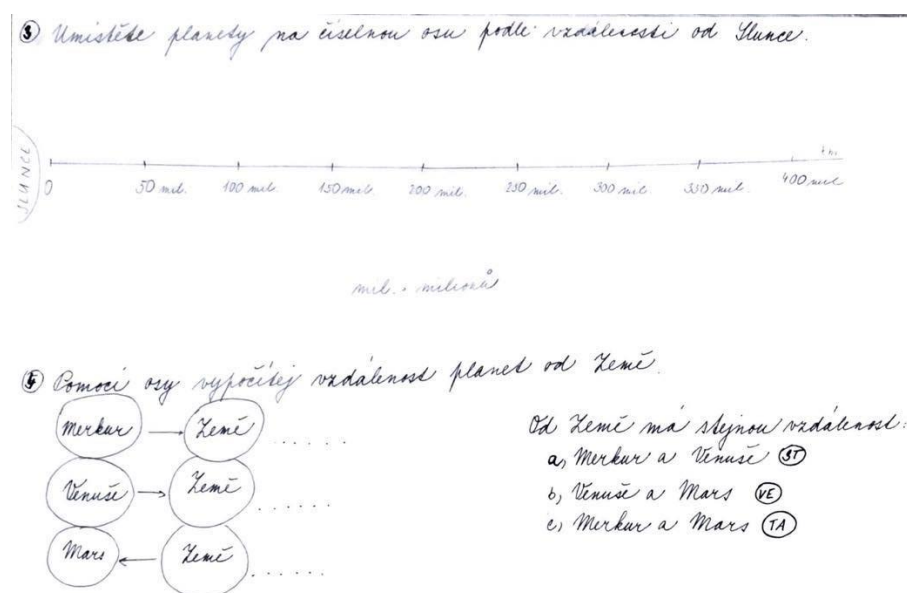 ③ Umístěte planety na číselnou osu podle vzdálenosti od Slunce.
SLUNCE
km
0 50 mil. 100 mil. 150 mil. 200 mil. 250 mil. 300 mil. 350 mil. 400 mil.
mil. = milionů
④ Pomocí osy vypočítej vzdálenost planet od Země.
Merkur → Země ......
Venuše → Země ......
Mars ← Země ......
Od Země má stejnou vzdálenost:
a, Merkur a Venuše ST
b, Venuše a Mars VE
c, Merkur a Mars TA